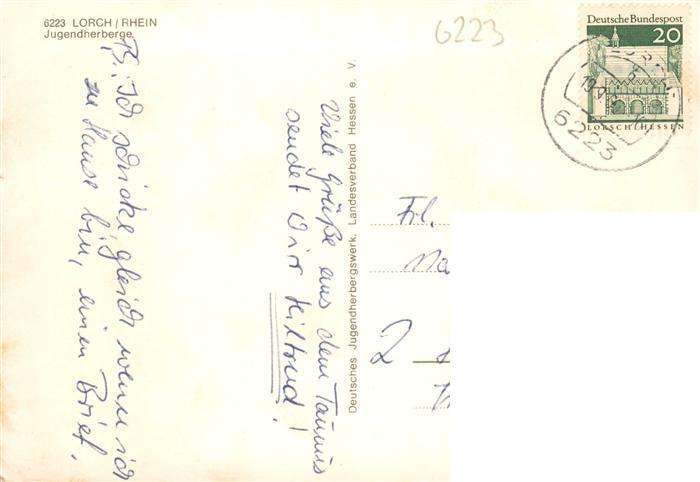 6223 LORCH / RHEIN
Jugendherberge
6223
Deutsche Bundespost
20
LORSCH/HESSEN
6223
Viele Grüße aus dem Taunus
sendet Dir Hiltrud!
B: Ich schicke, gleich wenn ich
zu Hause bin, einen Brief.
Deutsches Jugendherbergswerk. Landesverband Hessen e. V.
Frl.
2